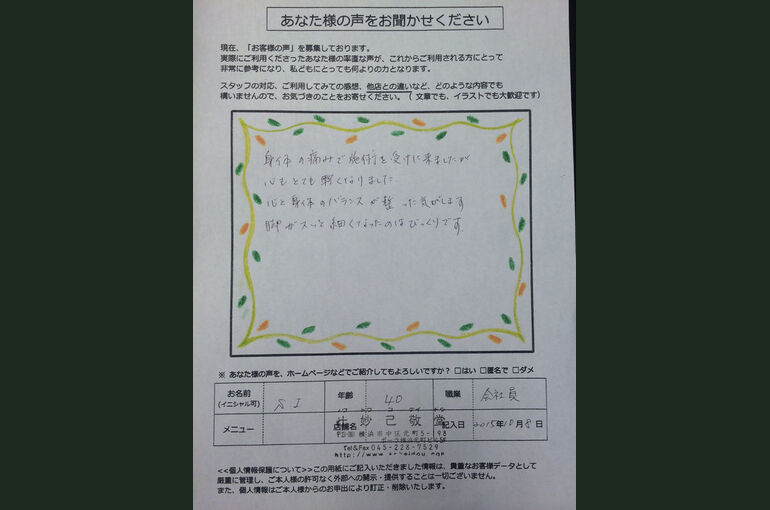 あなた様の声をお聞かせください
現在、「お客様の声」を募集しております。
実際にご利用くださったあなた様の率直な声が、これからご利用される方にとって
非常に参考になり、私どもにとっても何よりの力となります。
スタッフの対応、ご利用してみての感想、他店との違いなど、どのような内容でも
構いませんので、お気づきのことをお寄せください。（文章でも、イラストでも大歓迎です）
身体の痛みで施術を受けに来ましたが
心もとても軽くなりました
心と身体のバランスが整った気がします
脚がスッと細くなったのはびっくりです
※ あなた様の声を、ホームページなどでご紹介してもよろしいですか？ □はい □匿名で □ダメ
お名前 (イニシャル可) S I 年齢 40 職業 会社員
メニュー 店舗名 妙己敬堂 記入日 2015年10月8日
横浜市中区元町5-198
Tel&Fax 045-228-7529
<<個人情報保護について>>この用紙にご記入いただきました情報は、貴重なお客様データとして
厳重に管理し、ご本人様の許可なく外部への開示・提供することは一切ございません。
また、個人情報はご本人様からのお申出により訂正・削除いたします。